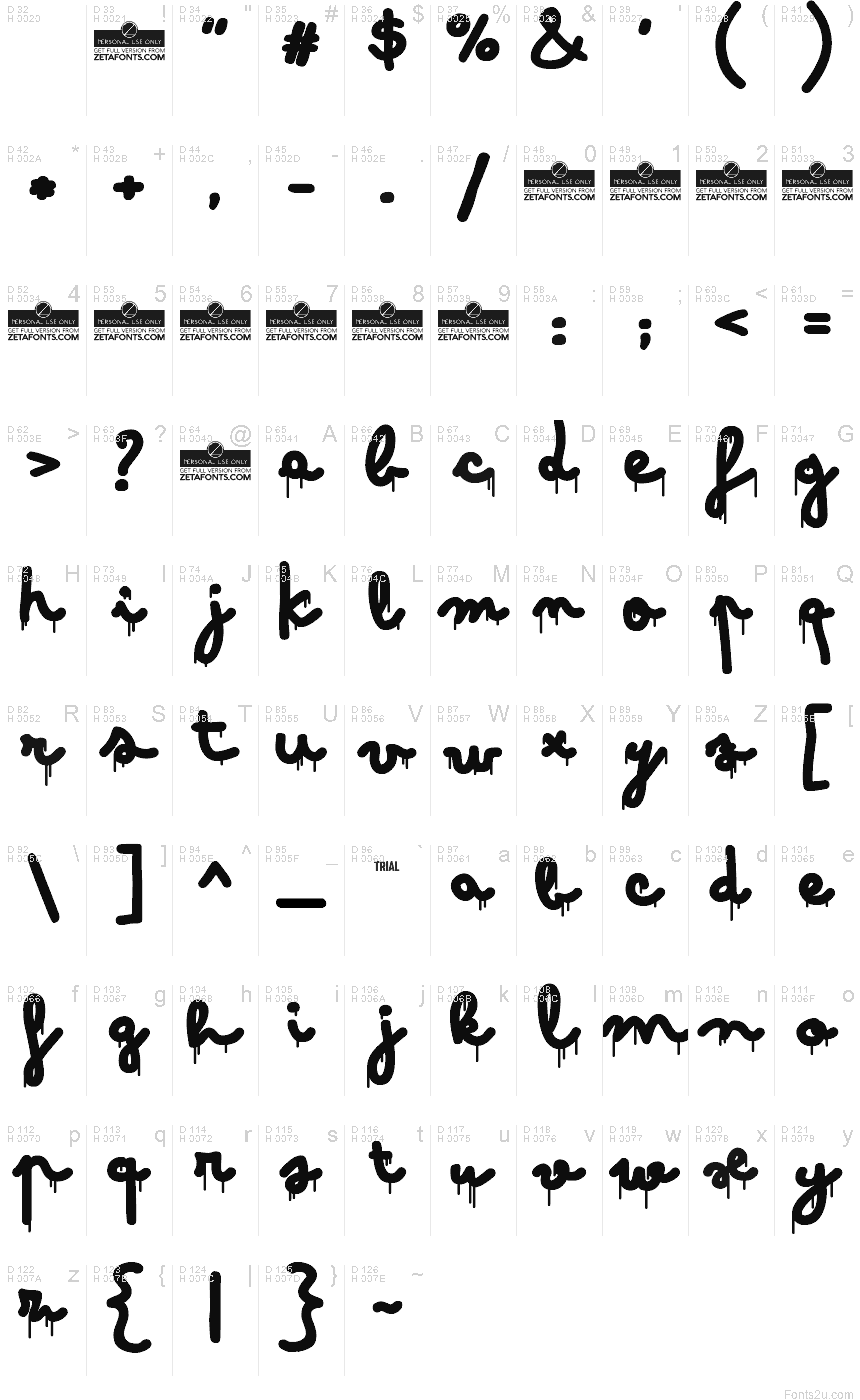 D 32 D 33 ! D 34 " D 35 # D 36 $ D 37 % D 38 & D 39 ' D 40 ( D 41 )
H 0020 H 0021 H 0022 H 0023 H 0024 H 0025 H 0026 H 0027 H 0028 H 0029
PERSONAL USE ONLY " # $ % & ' ( )
GET FULL VERSION FROM
ZETAFONTS.COM
D 42 * D 43 + D 44 , D 45 - D 46 . D 47 / D 48 0 D 49 1 D 50 2 D 51 3
H 002A H 002B H 002C H 002D H 002E H 002F H 0030 H 0031 H 0032 H 0033
* + , - . / PERSONAL USE ONLY PERSONAL USE ONLY PERSONAL USE ONLY PERSONAL USE ONLY
GET FULL VERSION FROM GET FULL VERSION FROM GET FULL VERSION FROM GET FULL VERSION FROM
ZETAFONTS.COM ZETAFONTS.COM ZETAFONTS.COM ZETAFONTS.COM
D 52 4 D 53 5 D 54 6 D 55 7 D 56 8 D 57 9 D 58 : D 59 ; D 60 < D 61 =
H 0034 H 0035 H 0036 H 0037 H 0038 H 0039 H 003A H 003B H 003C H 003D
PERSONAL USE ONLY PERSONAL USE ONLY PERSONAL USE ONLY PERSONAL USE ONLY PERSONAL USE ONLY PERSONAL USE ONLY : ; < =
GET FULL VERSION FROM GET FULL VERSION FROM GET FULL VERSION FROM GET FULL VERSION FROM GET FULL VERSION FROM GET FULL VERSION FROM
ZETAFONTS.COM ZETAFONTS.COM ZETAFONTS.COM ZETAFONTS.COM ZETAFONTS.COM ZETAFONTS.COM
D 62 > D 63 ? D 64 @ D 65 A D 66 B D 67 C D 68 D D 69 E D 70 F D 71 G
H 003E H 003F H 0040 H 0041 H 0042 H 0043 H 0044 H 0045 H 0046 H 0047
> ? PERSONAL USE ONLY a b c d e f g
GET FULL VERSION FROM
ZETAFONTS.COM
D 72 H D 73 I D 74 J D 75 K D 76 L D 77 M D 78 N D 79 O D 80 P D 81 Q
H 0048 H 0049 H 004A H 004B H 004C H 004D H 004E H 004F H 0050 H 0051
h i j k l m n o p q
D 82 R D 83 S D 84 T D 85 U D 86 V D 87 W D 88 X D 89 Y D 90 Z D 91 [
H 0052 H 0053 H 0054 H 0055 H 0056 H 0057 H 0058 H 0059 H 005A H 005B
r s t u v w x y z [
D 92 \ D 93 ] D 94 ^ D 95 _ D 96 ` D 97 a D 98 b D 99 c D 100 d D 101 e
H 005C H 005D H 005E H 005F H 0060 H 0061 H 0062 H 0063 H 0064 H 0065
\ ] ^ _ TRIAL a b c d e
D 102 f D 103 g D 104 h D 105 i D 106 j D 107 k D 108 l D 109 m D 110 n D 111 o
H 0066 H 0067 H 0068 H 0069 H 006A H 006B H 006C H 006D H 006E H 006F
f g h i j k l m n o
D 112 p D 113 q D 114 r D 115 s D 116 t D 117 u D 118 v D 119 w D 120 x D 121 y
H 0070 H 0071 H 0072 H 0073 H 0074 H 0075 H 0076 H 0077 H 0078 H 0079
p q r s t u v w x y
D 122 z D 123 { D 124 | D 125 } D 126 ~
H 007A H 007B H 007C H 007D H 007E
z { | } ~
Fonts2u.com